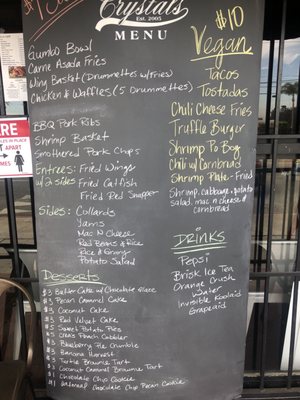 Crystals
Est. 2005
MENU
Gumbo Bowl
Carne Asada Fries
Wing Basket (Drummettes w/fries)
Chicken & Waffles (5 Drummettes)
BBQ Pork Ribs
Shrimp Basket
Smothered Pork Chips
Entrees: Fried Wings
w/2 sides Fried Catfish
Fried Red Snapper
Sides: Collards
Yams
Mac N Cheese
Red Beans & Rice
Rice & Gravy
Potato Salad
Desserts
$3 Butter Cake w/Chocolate Glaze
$3 Pecan Caramel Cake
$3 Coconut Cake
$3 Red Velvet Cake
$5 Sweet Potato Pies
Peach Cobbler
Blueberry Pie Crumble
$3 Banana
$3 Turtle Brownie Tart
$3 Coconut Caramel Brownie Tart
$1 Chocolate Chip Cookie
$1 Oatmeal Chocolate Chip Pecan Cookie
$10
Vegan
Tacos
Tostadas
Chili Cheese Fries
Truffle Burger
Shrimp Po Boy
Chili w/ Cornbread
Shrimp Plate - Fried
Shrimp, cabbage, potato
salad, mac n cheese &
cornbread
DRINKS
Pepsi
Brisk Ice Tea
Orange Crush
Water
Invisible Koolaid
Grapeaid
HERE
APART